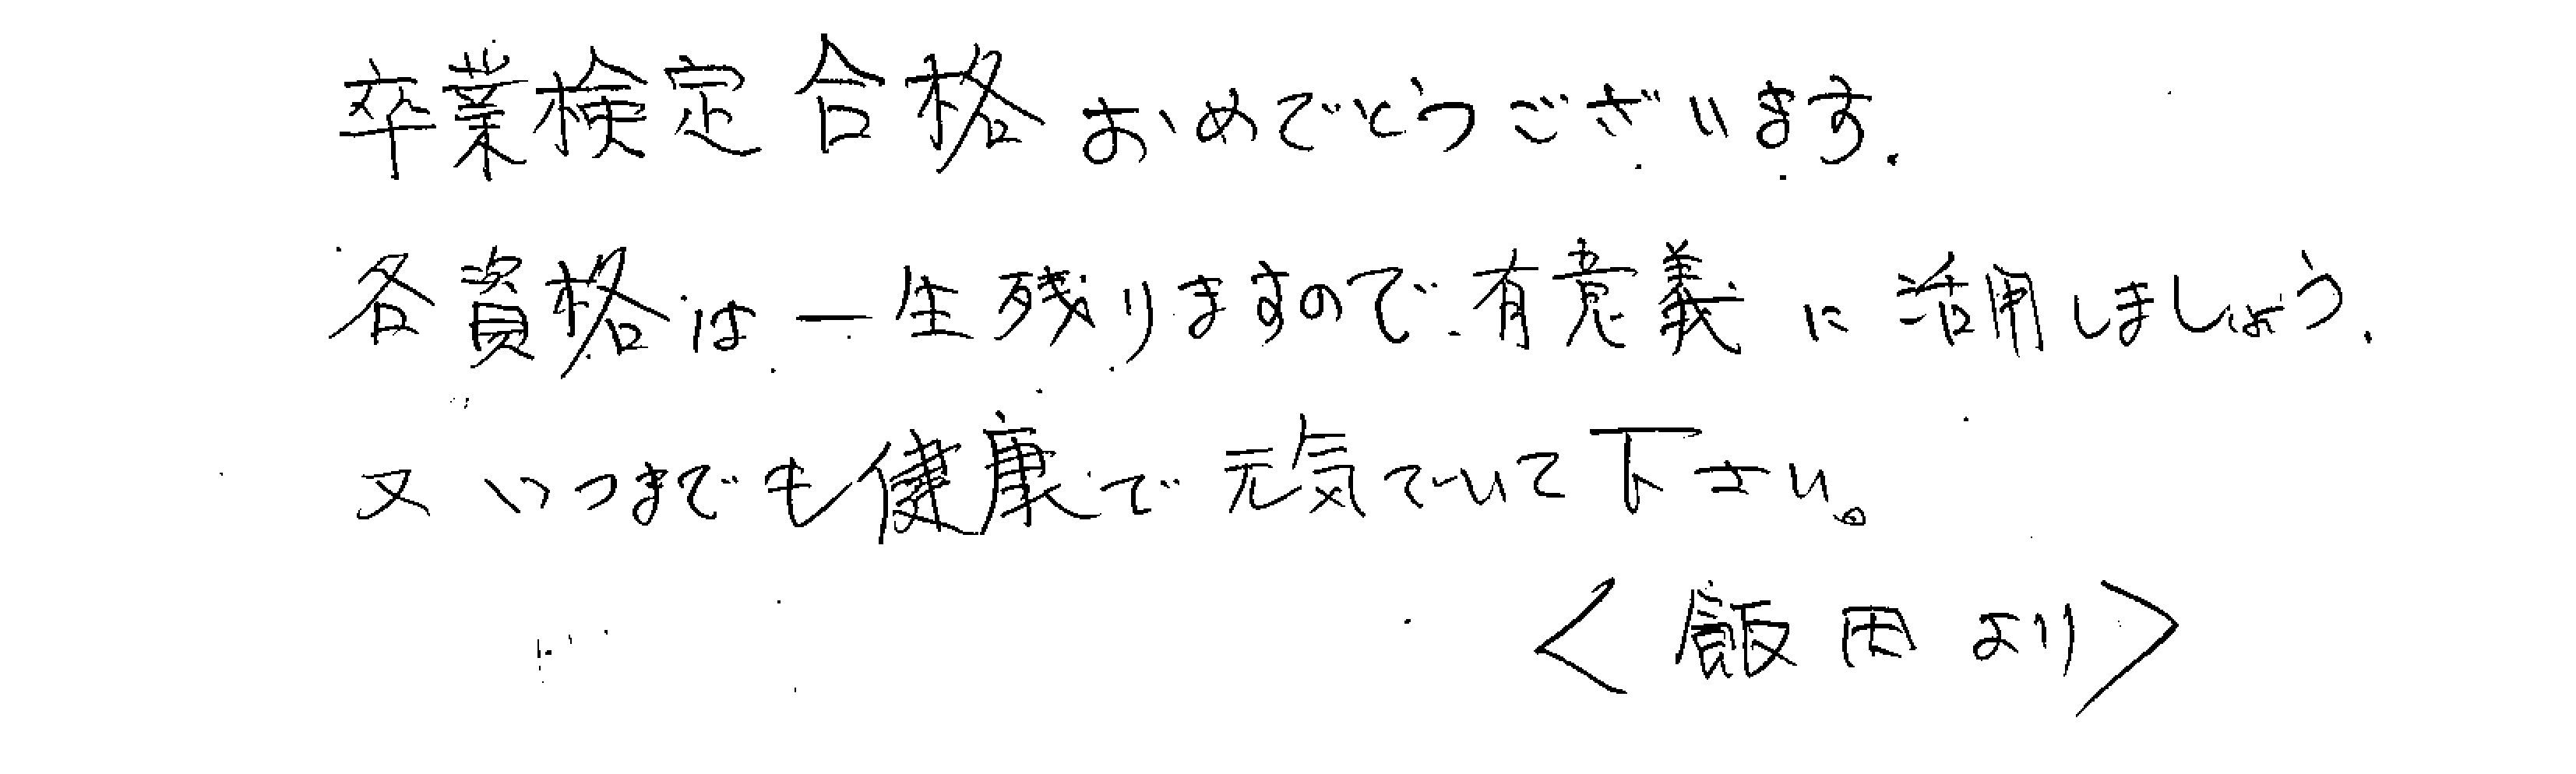 卒業検定合格おめでとうございます.
各資格は一生残りますので.有意義に活用しましょう.
又いつまでも健康で元気でいて下さい。
<飯田より>